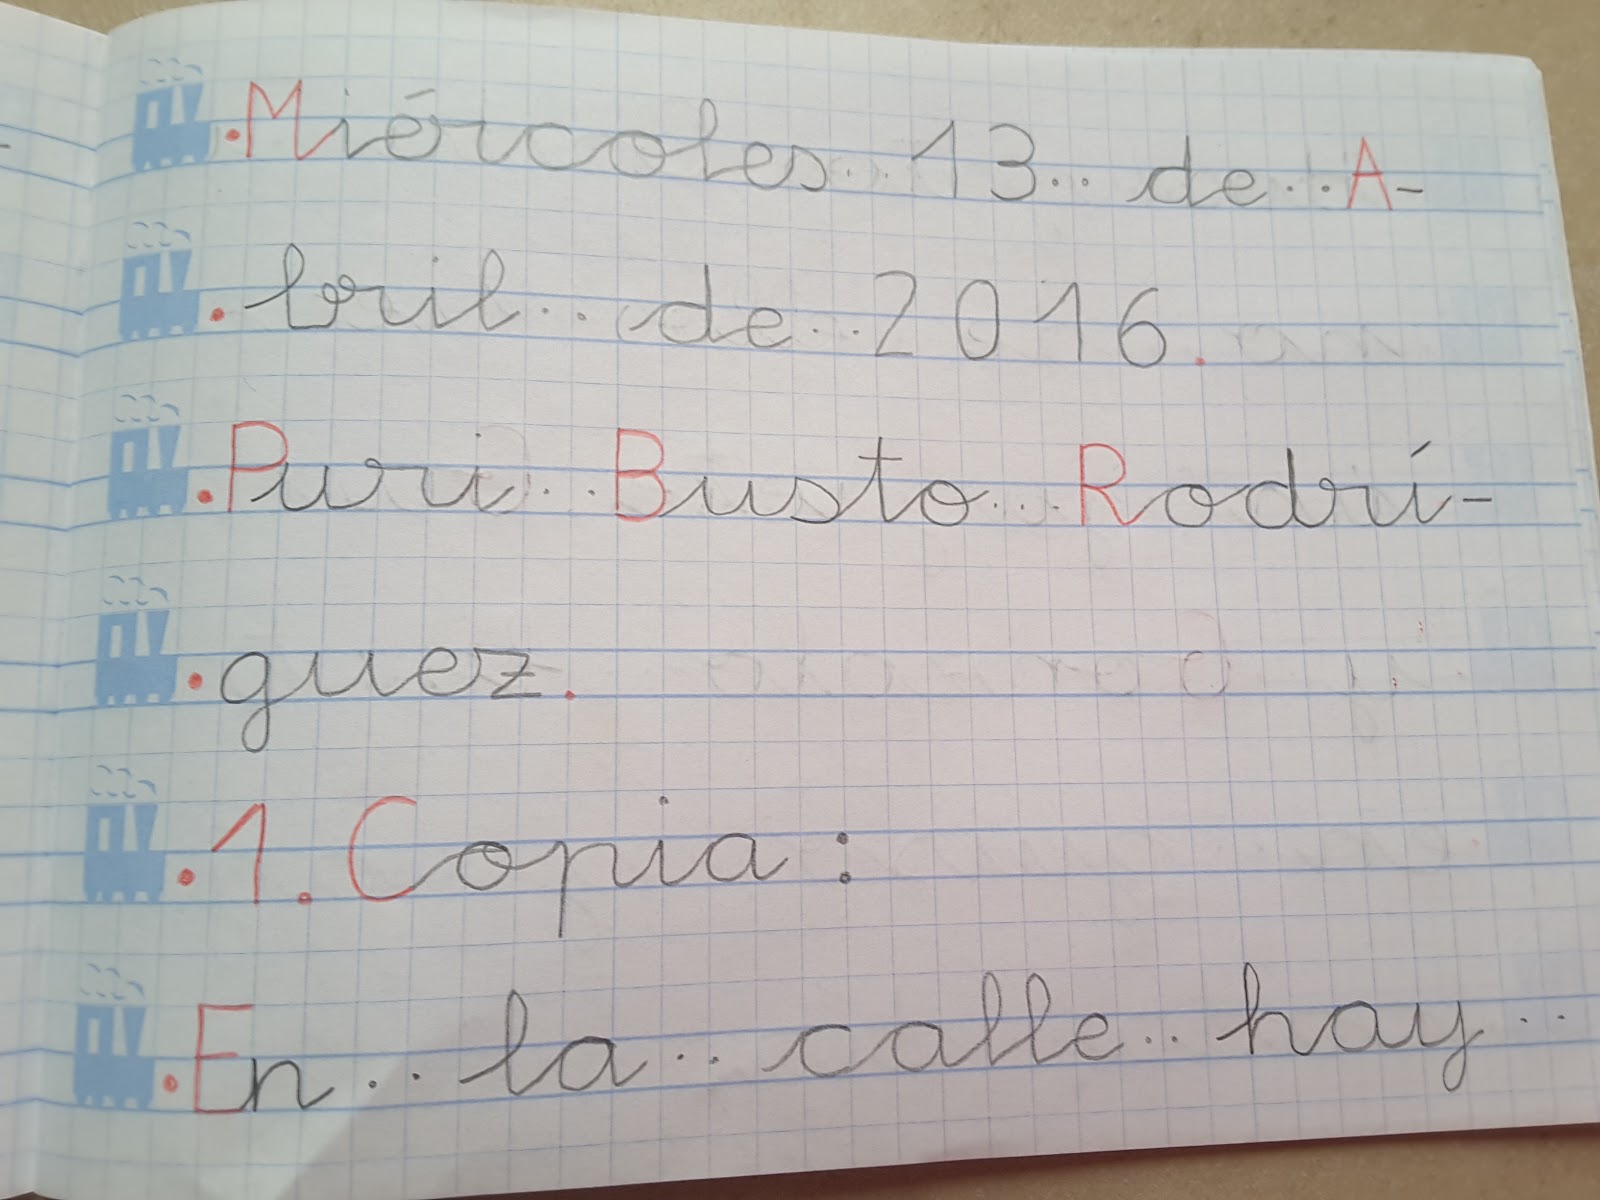 .Miércoles..13..de..A-
.bril..de..2016.
.Puri..Busto..Rodrí-
.guez.
.1.Copia:
.En..la..calle..hay..